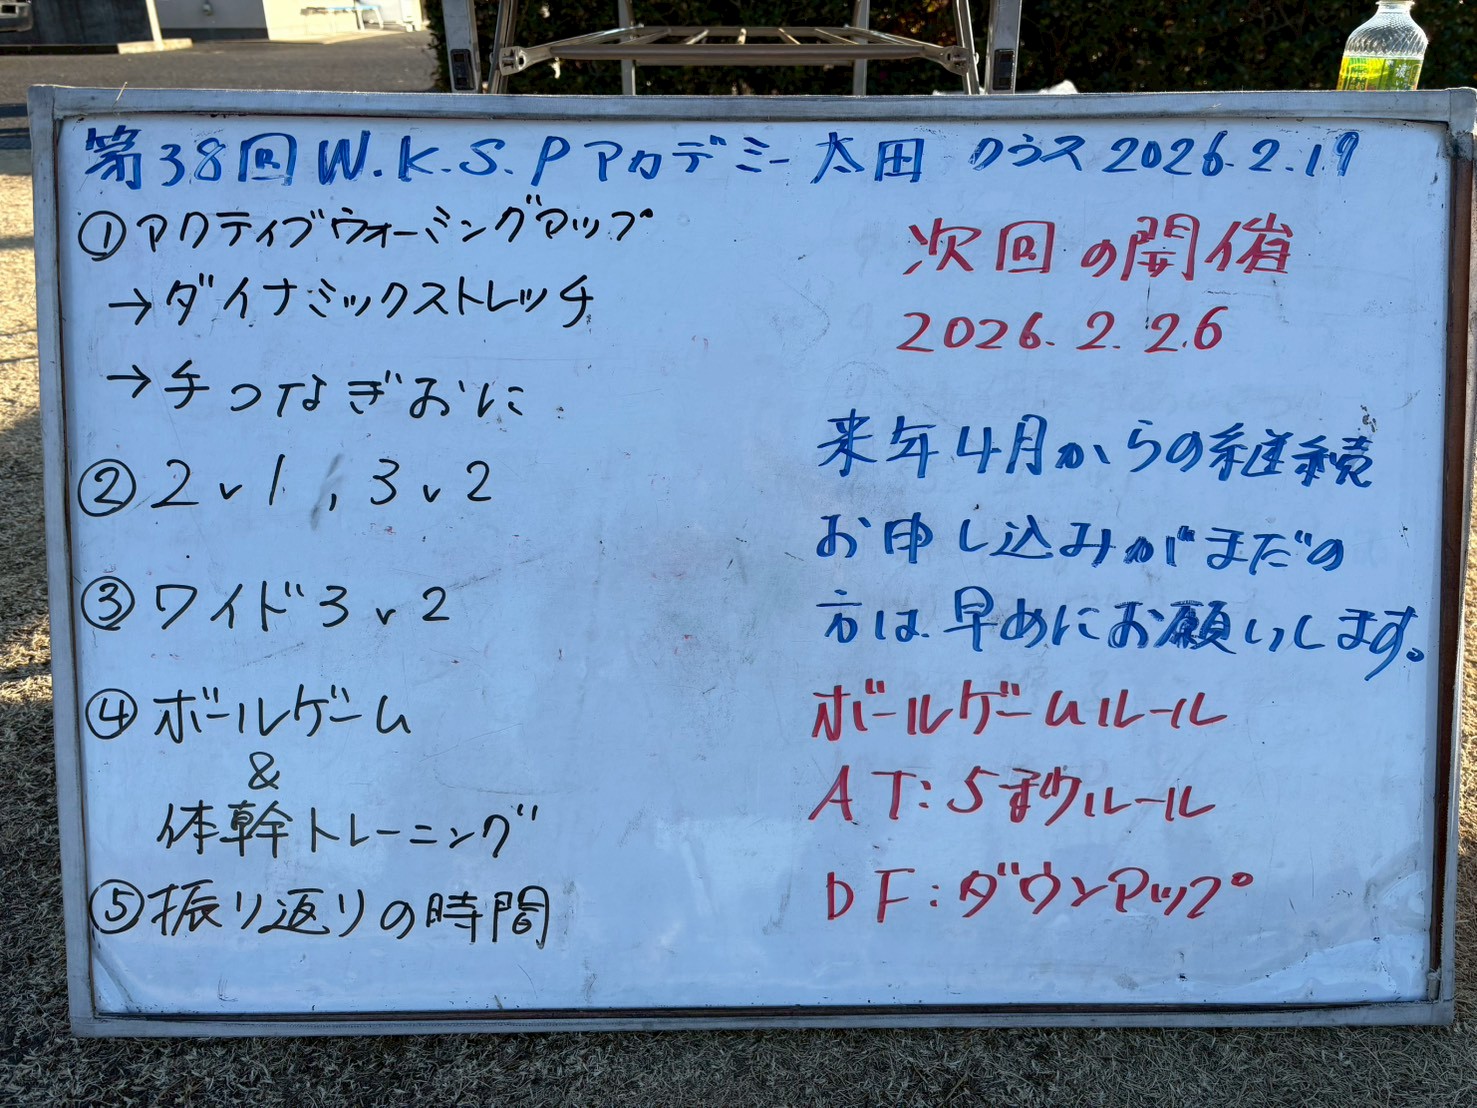 第38回 W.K.S.Pアカデミー 太田 クラス 2026.2.19
①アクティブウォーミングアップ
→ダイナミックストレッチ
→手つなぎおに
② 2v1,3v2
③ ワイド3v2
④ ボールゲーム
&
体幹トレーニング
⑤振り返りの時間
次回の開催
2026.2.26
来年4月からの継続
お申し込みがまだの
方は早めにお願いします。
ボールゲームルール
AT:5秒ルール
DF:ダウンアップ